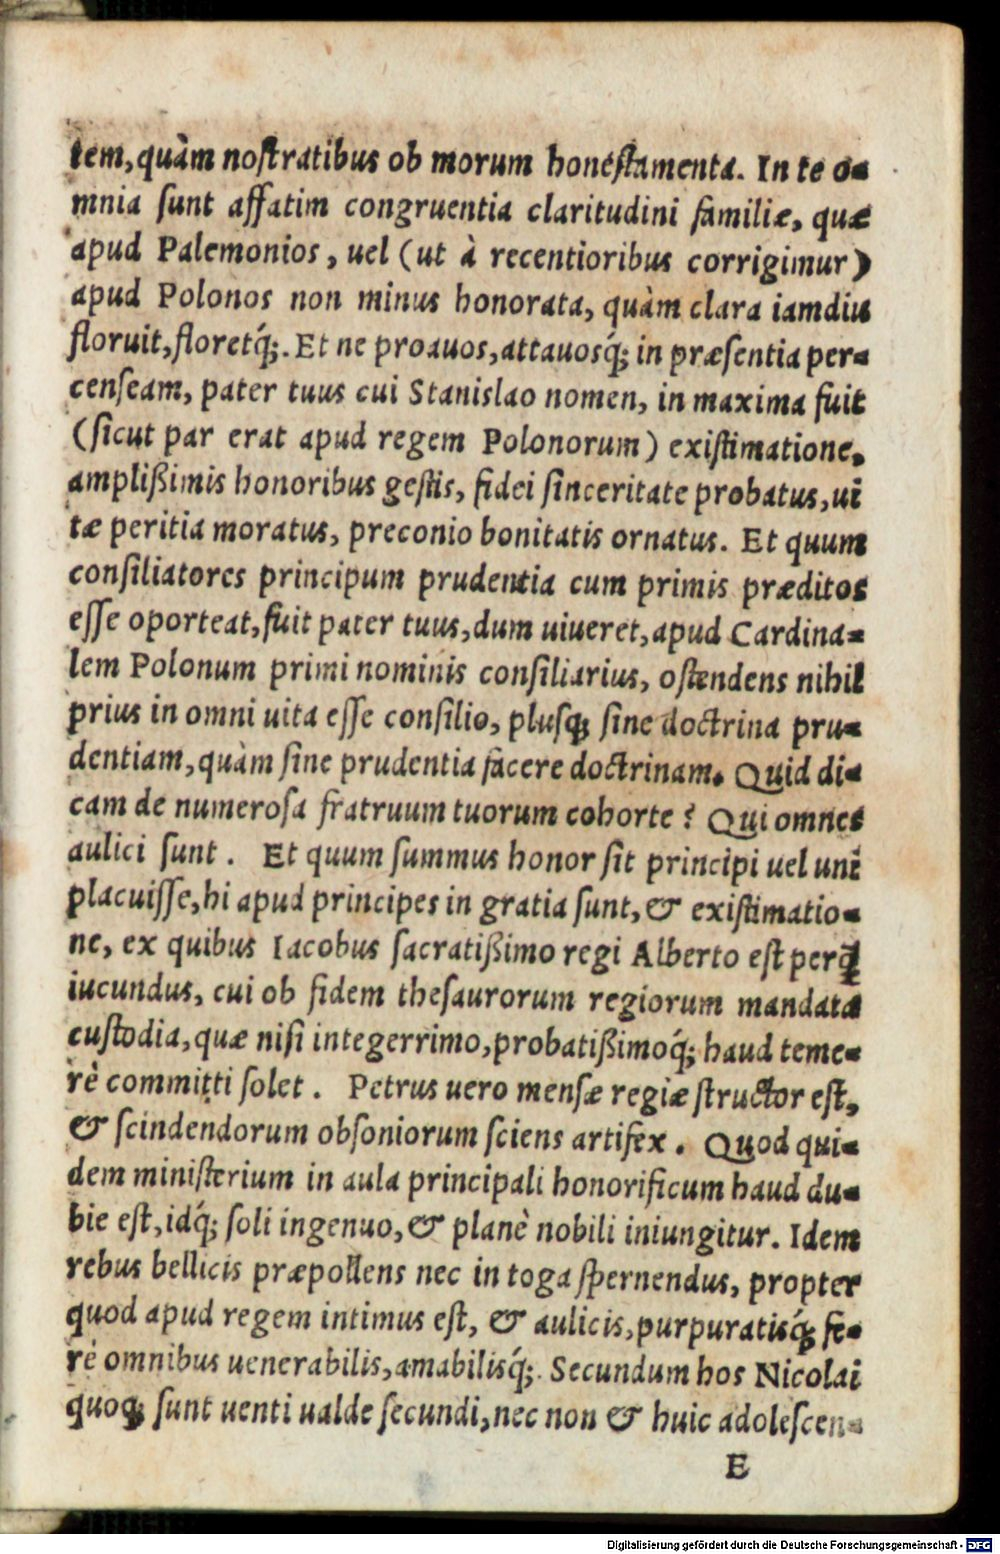 tem, quàm nostratibus ob morum honestamenta. In te o-
mnia sunt affatim congruentia claritudini familiæ, quæ
apud Palemonios, uel (ut à recentioribus corrigimur)
apud Polonos non minus honorata, quàm clara iamdiu
floruit, floretq́;. Et ne proauos, attauosq́; in præsentia per-
censeam, pater tuus cui Stanislao nomen, in maxima fuit
(sicut par erat apud regem Polonorum) existimatione,
amplißimis honoribus gestis, fidei sinceritate probatus, ui
tæ peritia moratus, preconio bonitatis ornatus. Et quum
consiliatores principum prudentia cum primis præditos
esse oporteat, fuit pater tuus, dum uiueret, apud Cardina-
lem Polonum primi nominis consiliarius, ostendens nihil
prius in omni uita esse consilio, plusq; sine doctrina pru-
dentiam, quàm sine prudentia facere doctrinam. Quid di-
cam de numerosa fratruum tuorum cohorte? Qui omnes
aulici sunt. Et quum summus honor sit principi uel uni
placuisse, hi apud principes in gratia sunt, & existimatio-
ne, ex quibus Iacobus sacratißimo regi Alberto est perq̃
iucundus, cui ob fidem thesaurorum regiorum mandata
custodia, quæ nisi integerrimo, probatißimoq́; haud teme-
rè committi solet. Petrus uero mensæ regiæ structor est,
& scindendorum obsoniorum sciens artifex. Quod qui-
dem ministerium in aula principali honorificum haud du-
bie est, idq́; soli ingenuo, & planè nobili iniungitur. Idem
rebus bellicis præpollens nec in toga spernendus, propter
quod apud regem intimus est, & aulicis, purpuratisq́; fe-
rè omnibus uenerabilis, amabilisq́;. Secundum hos Nicolai
quoq; sunt uenti ualde secundi, nec non & huic adolescen-
E
Digitalisierung gefördert durch die Deutsche Forschungsgemeinschaft - DFG